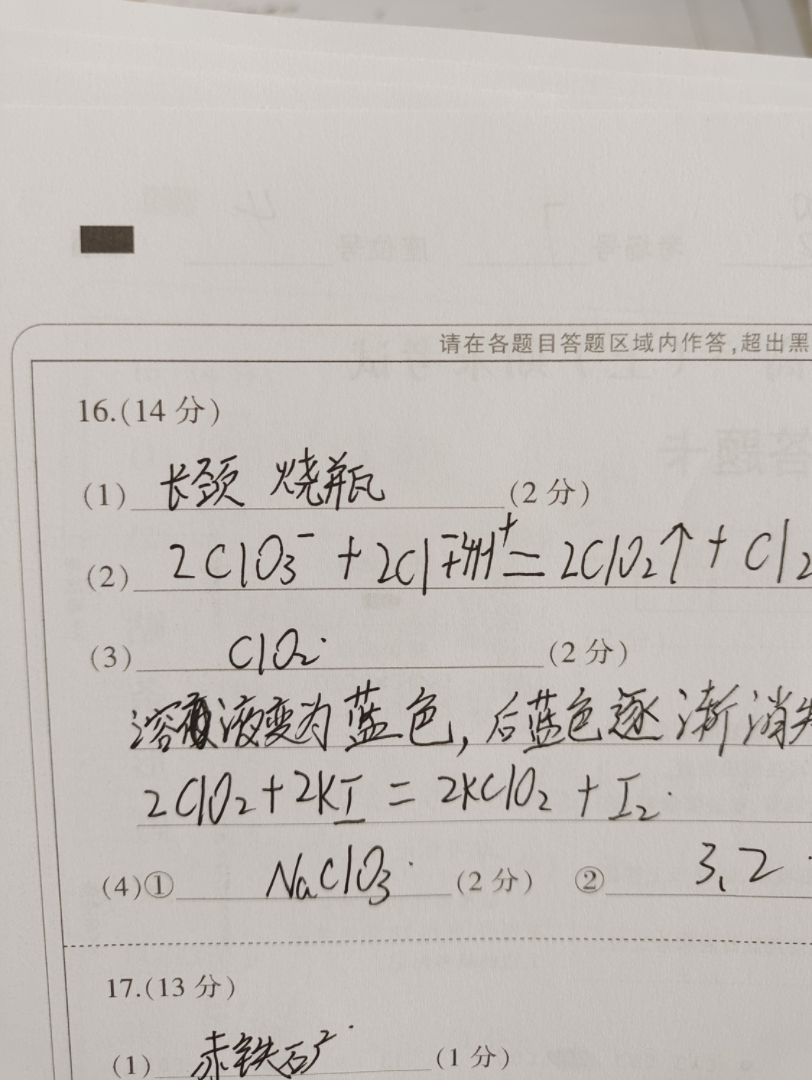 考场号 7 座位号 4
请在各题目答题区域内作答,超出黑
答题卡
16.(14 分)
(1) 长颈 烧瓶 (2 分)
(2) 2ClO₃⁻ + 2Cl⁻+4H⁺ = 2ClO₂↑ + Cl₂
(3) ClO₂. (2 分)
溶液变为蓝色,后蓝色逐渐消失
2ClO₂+2KI = 2KClO₂ + I₂.
(4)① NaClO₃. (2 分) ② 3、2
17.(13 分)
(1) 赤铁矿. (1 分)